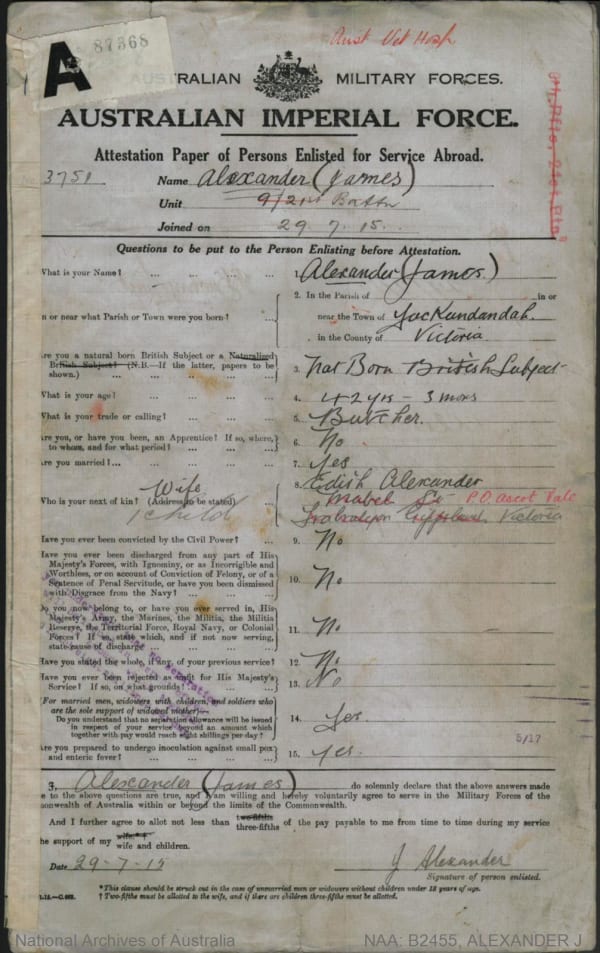 Aust Vet Hosp
A 87368
AUSTRALIAN MILITARY FORCES.
AUSTRALIAN IMPERIAL FORCE.
Attestation Paper of Persons Enlisted for Service Abroad.
3751 Name Alexander (James)
Unit 9/21st Battn
Joined on 29.7.15.
Questions to be put to the Person Enlisting before Attestation.
What is your Name? ... ... ... ... 1. Alexander (James)
2. In the Parish of in or
n or near what Parish or Town were you born? ... near the Town of Yackandandah
in the County of Victoria
Are you a natural born British Subject or a Naturalized
British Subject? (N.B.—If the latter, papers to be 3. Nat Born British Subject
shown.) ... ... ... ... ...
What is your age? ... ... ... ... 4. 42 yrs - 3 mons
What is your trade or calling? ... ... ... 5. Butcher.
Are you, or have you been, an Apprentice? If so, where, 6. No
to whom, and for what period? ... ... ...
Are you married? ... ... ... ... 7. Yes
Wife 8. Edith Alexander
Who is your next of kin? (Address to be stated) Mabel St P.O. Ascot Vale
1 child Traralgon Gippsland Victoria
Have you ever been convicted by the Civil Power? ... 9. No
Have you ever been discharged from any part of His
Majesty's Forces, with Ignominy, or as Incorrigible and
Worthless, or on account of Conviction of Felony, or of a 10. No
Sentence of Penal Servitude, or have you been dismissed
with Disgrace from the Navy? ... ... ...
Do you now belong to, or have you ever served in, His
Majesty's Army, the Marines, the Militia, the Militia
Reserve, the Territorial Force, Royal Navy, or Colonial 11. No
Forces? If so, state which, and if not now serving,
state cause of discharge ... ... ...
Have you stated the whole, if any, of your previous service? 12. No
Have you ever been rejected as unfit for His Majesty's 13. No
Service? If so, on what grounds? ... ...
*For married men, widowers with children, and soldiers who
are the sole support of widowed mother—
Do you understand that no separation allowance will be issued 14. Yes
in respect of your service beyond an amount which
together with pay would reach eight shillings per day?
5/17
Are you prepared to undergo inoculation against small pox 15. Yes.
and enteric fever? ... ... ... ...
3, Alexander (James) do solemnly declare that the above answers made
e to the above questions are true, and I am willing and hereby voluntarily agree to serve in the Military Forces of the
monwealth of Australia within or beyond the limits of the Commonwealth.
And I further agree to allot not less than two-fifths three-fifths of the pay payable to me from time to time during my service
he support of my wife wife and children.
Date 29-7-15 J Alexander
Signature of person enlisted.
*This clause should be struck out in the case of unmarried men or widowers without children under 18 years of age.
† Two-fifths must be allotted to the wife, and if there are children three-fifths must be allotted.
National Archives of Australia NAA: B2455, ALEXANDER J